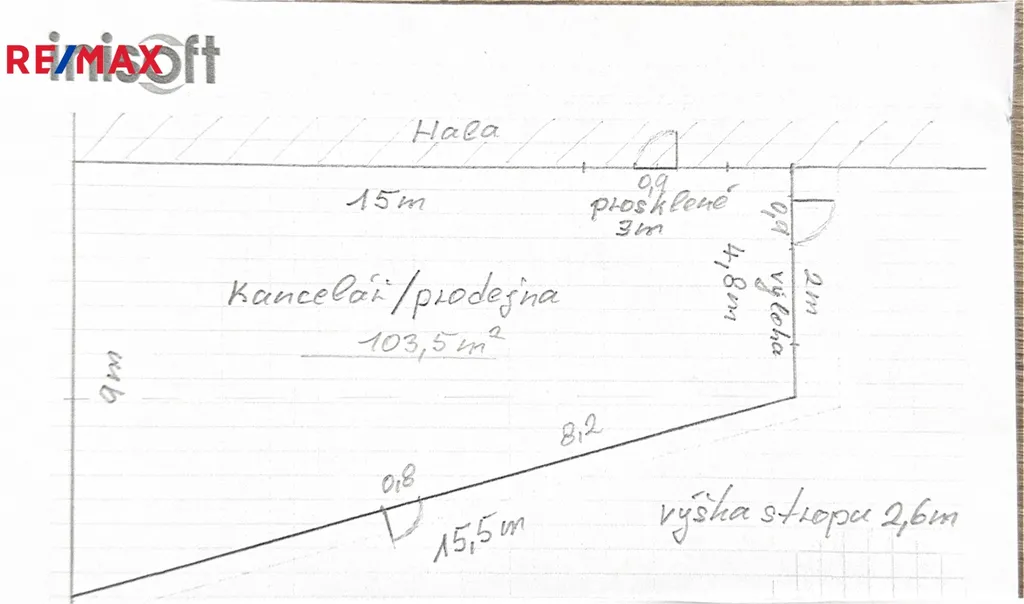 RE/MAX
imisoft
Hala
0,9
15m
prosklené
3m
0,9
4,8m
výloha
2m
Kancelář/prodejna
103,5m²
9m
8,2
0,8
15,5m
výška stropu 2,6m